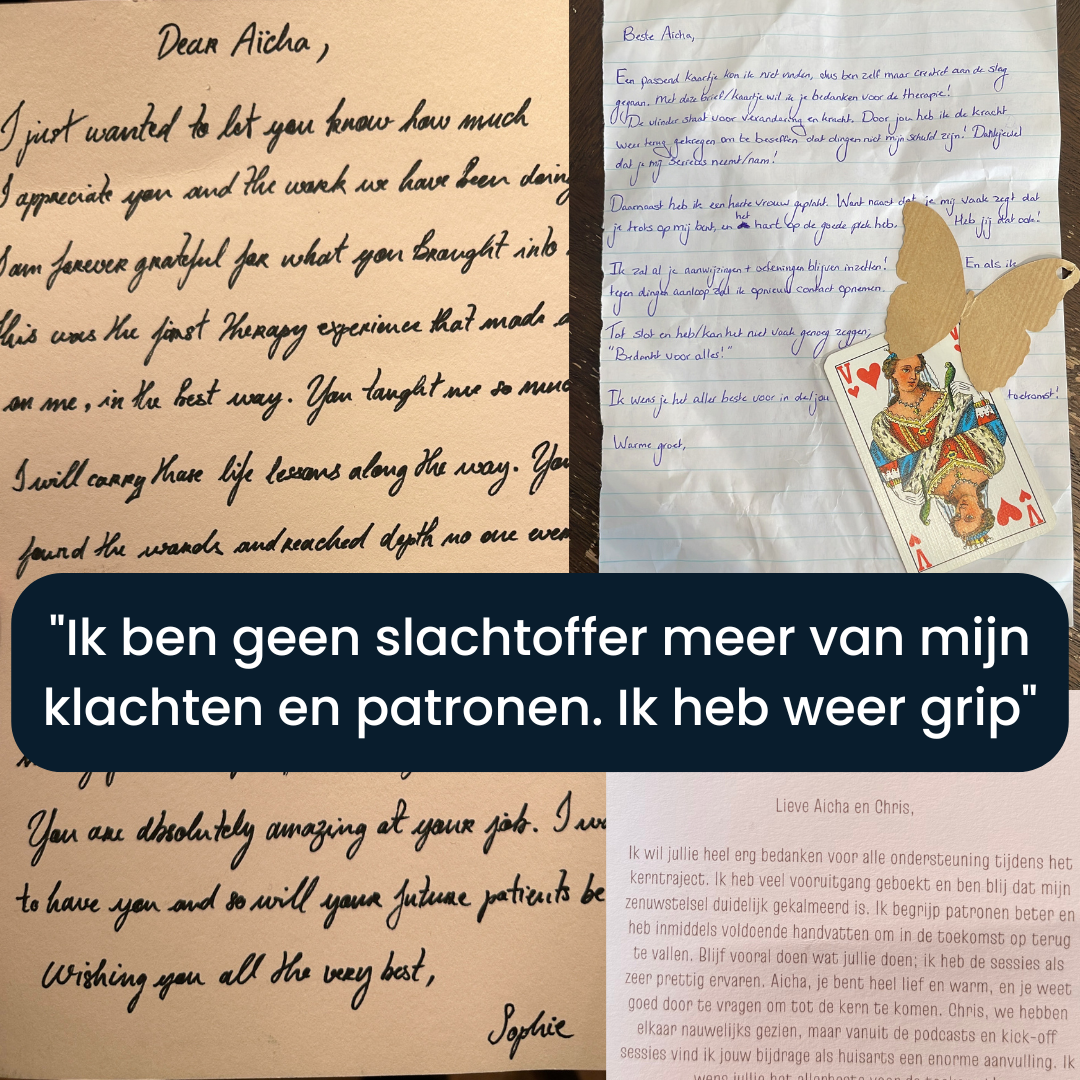 Dear Aïcha,
I just wanted to let you know how much
I appreciate you and the work we have been doing
I am forever grateful for what you brought into
this was the first therapy experience that made a
on me, in the best way. You taught me so much
I will carry these life lessons along the way. You
found the words and reached depth no one ever
You are absolutely amazing at your job. I wa
to have you and so will your future patients be
Wishing you all the very best,
Sophie
Beste Aicha,
Een passend kaartje kon ik niet vinden, dus ben zelf maar creatief aan de slag
gegaan. Met deze brief/kaartje wil ik je bedanken voor de therapie!
De vlinder staat voor verandering en kracht. Door jou heb ik de kracht
weer terug gekregen om te beseffen dat dingen niet mijn schuld zijn! Dankjewel
dat je mij serieus neemt/nam!
Daarnaast heb ik een harte vrouw geplakt. Want naast dat je mij vaak zegt dat
je trots op mij bent, en het hart op de goede plek heb. Heb jij dat ook!
Ik zal al je aanwijzingen + oefeningen blijven inzetten! En als ik
tegen dingen aanloop zal ik opnieuw contact opnemen.
Tot slot en heb/kan het niet vaak genoeg zeggen;
"Bedankt voor alles!"
Ik wens je het aller beste voor in de/jou toekomst!
Warme groet,
V
V
V
"Ik ben geen slachtoffer meer van mijn
klachten en patronen. Ik heb weer grip"
Lieve Aicha en Chris,
Ik wil jullie heel erg bedanken voor alle ondersteuning tijdens het
kerntraject. Ik heb veel vooruitgang geboekt en ben blij dat mijn
zenuwstelsel duidelijk gekalmeerd is. Ik begrijp patronen beter en
heb inmiddels voldoende handvatten om in de toekomst op terug
te vallen. Blijf vooral doen wat jullie doen; ik heb de sessies als
zeer prettig ervaren. Aicha, je bent heel lief en warm, en je weet
goed door te vragen om tot de kern te komen. Chris, we hebben
elkaar nauwelijks gezien, maar vanuit de podcasts en kick-off
sessies vind ik jouw bijdrage als huisarts een enorme aanvulling. Ik
wens jullie het allerbeste voor de